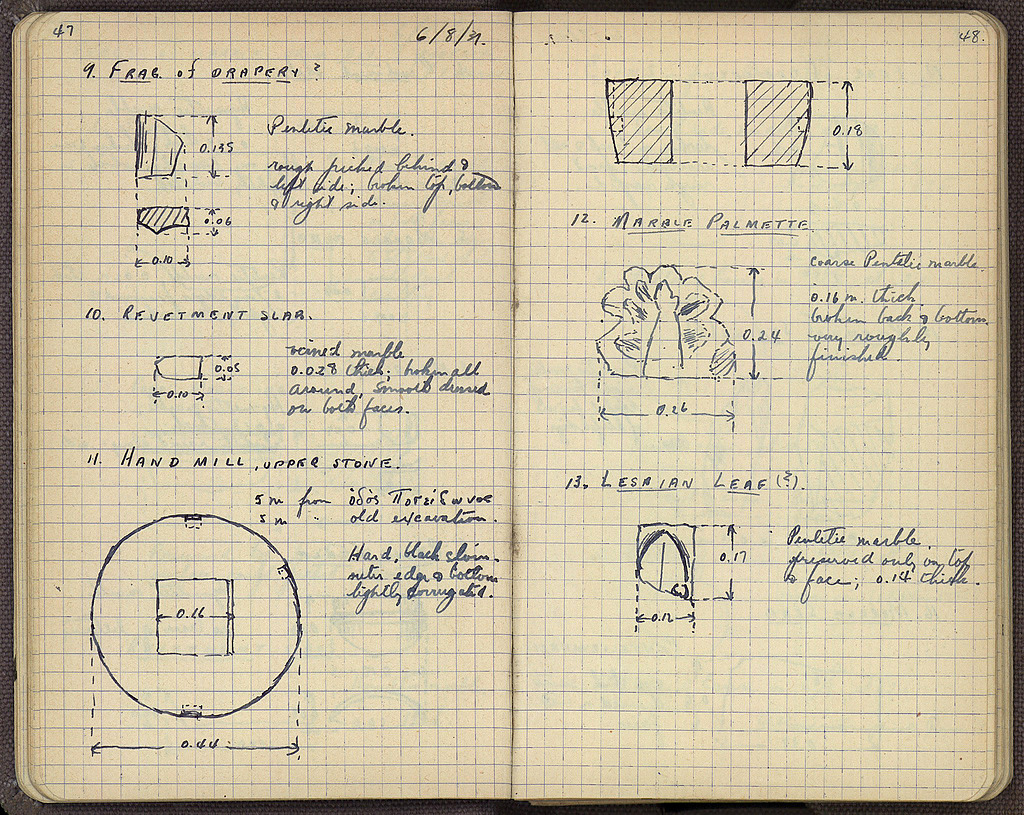 47
6/8/31.
9. FRAG. of DRAPERY?
0.135
0.06
0.10
Pentelic marble.
rough picked behind &
left side; broken top, bottom
& right side.
10. REVETMENT SLAB.
0.05
0.10
veined marble
0.028 thick; broken all
around, smooth dressed
on both faces.
11. HAND MILL, UPPER STONE.
5 m from ὁδὸς Ποσειδωνος
5 m " old excavation.
Hard, black stone
outer edge & bottom
lightly corrugated.
0.16
0.44
48.
0.18
12. MARBLE PALMETTE.
coarse Pentelic marble.
0.16 m. thick
broken back & bottom.
very roughly
finished.
0.24
0.26
13. LESBIAN LEAF (?).
0.17
0.12
Pentelic marble,
preserved only on top
& face; 0.14 thick.